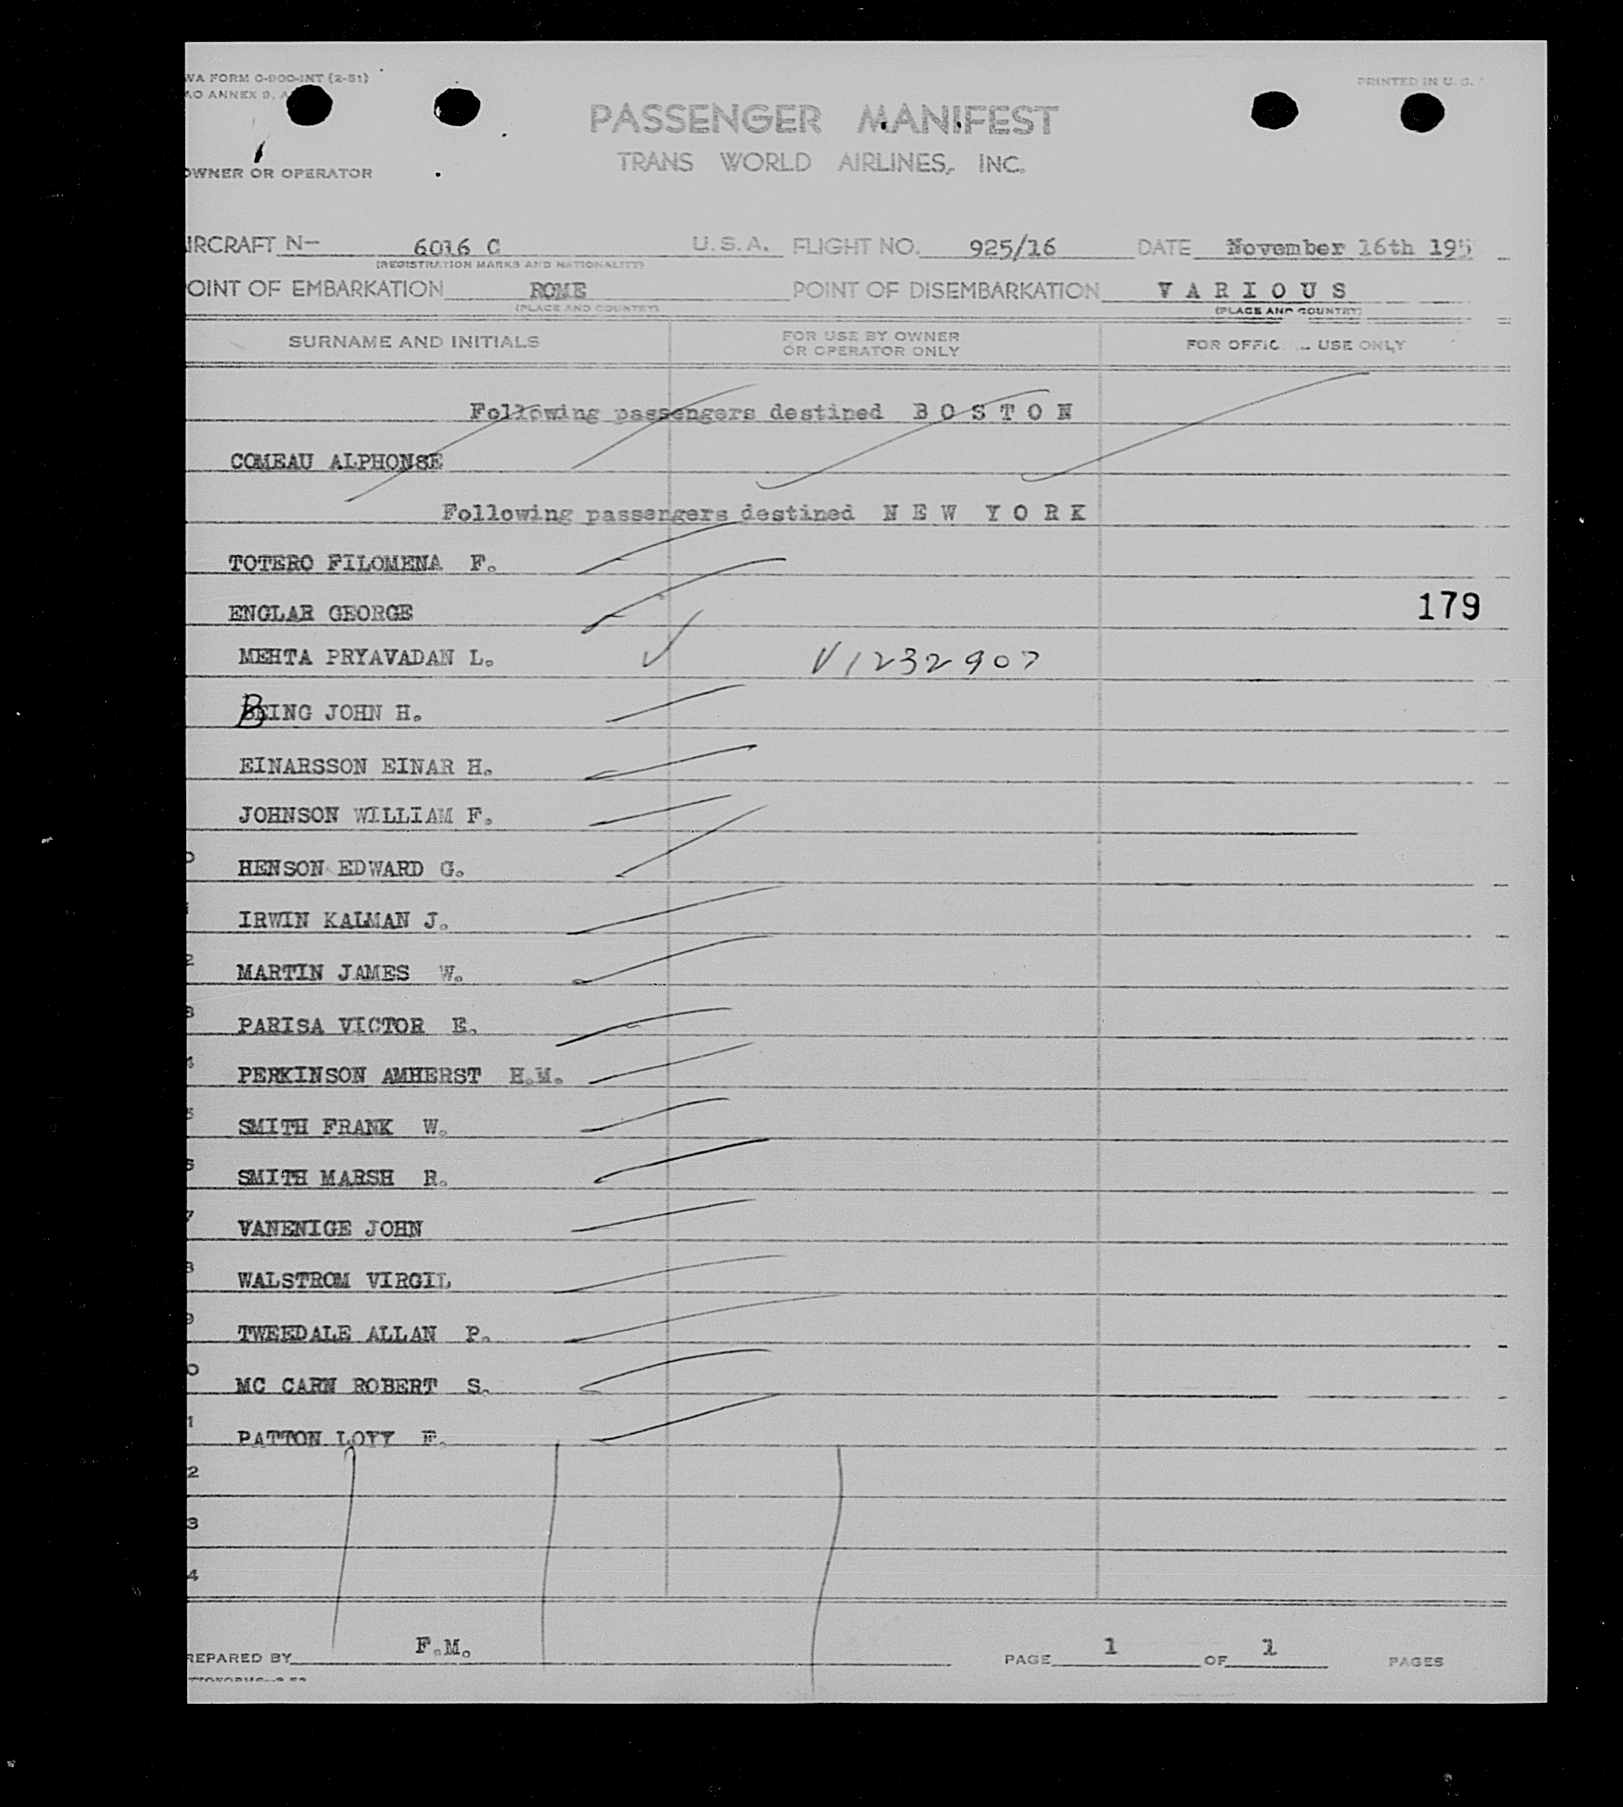 WA FORM O-900-INT (2-51)
PRINTED IN U. S.
AO ANNEX 9, A
PASSENGER MANIFEST
TRANS WORLD AIRLINES, INC.
OWNER OR OPERATOR
IRCRAFT N- 6016 C U.S.A. FLIGHT NO. 925/16 DATE November 16th 195
(REGISTRATION MARKS AND NATIONALITY)
OINT OF EMBARKATION ROME POINT OF DISEMBARKATION V A R I O U S
(PLACE AND COUNTRY) (PLACE AND COUNTRY)
SURNAME AND INITIALS FOR USE BY OWNER OR OPERATOR ONLY FOR OFFIC USE ONLY
Following passengers destined B O S T O N
COMEAU ALPHONSE
Following passengers destined N E W Y O R K
TOTERO FILOMENA F.
ENGLAR GEORGE 179
MEHTA PRYAVADAN L. V1232907
BEING JOHN H.
EINARSSON EINAR H.
JOHNSON WILLIAM F.
0 HENSON EDWARD G.
1 IRWIN KALMAN J.
2 MARTIN JAMES W.
3 PARISA VICTOR E.
4 PERKINSON AMHERST H.M.
5 SMITH FRANK W.
6 SMITH MARSH R.
7 VANENIGE JOHN
8 WALSTROM VIRGIL
9 TWEEDALE ALLAN P.
0 MC CARN ROBERT S.
1 PATTON LOYY F.
2
3
4
REPARED BY F.M. PAGE 1 OF 1 PAGES